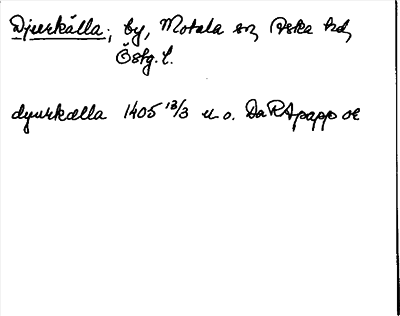 Djurkälla, by, Motala sn, Aska hd,
Östg. l.
dyurkælla 1405 13/3 u.o. DaRA papp or